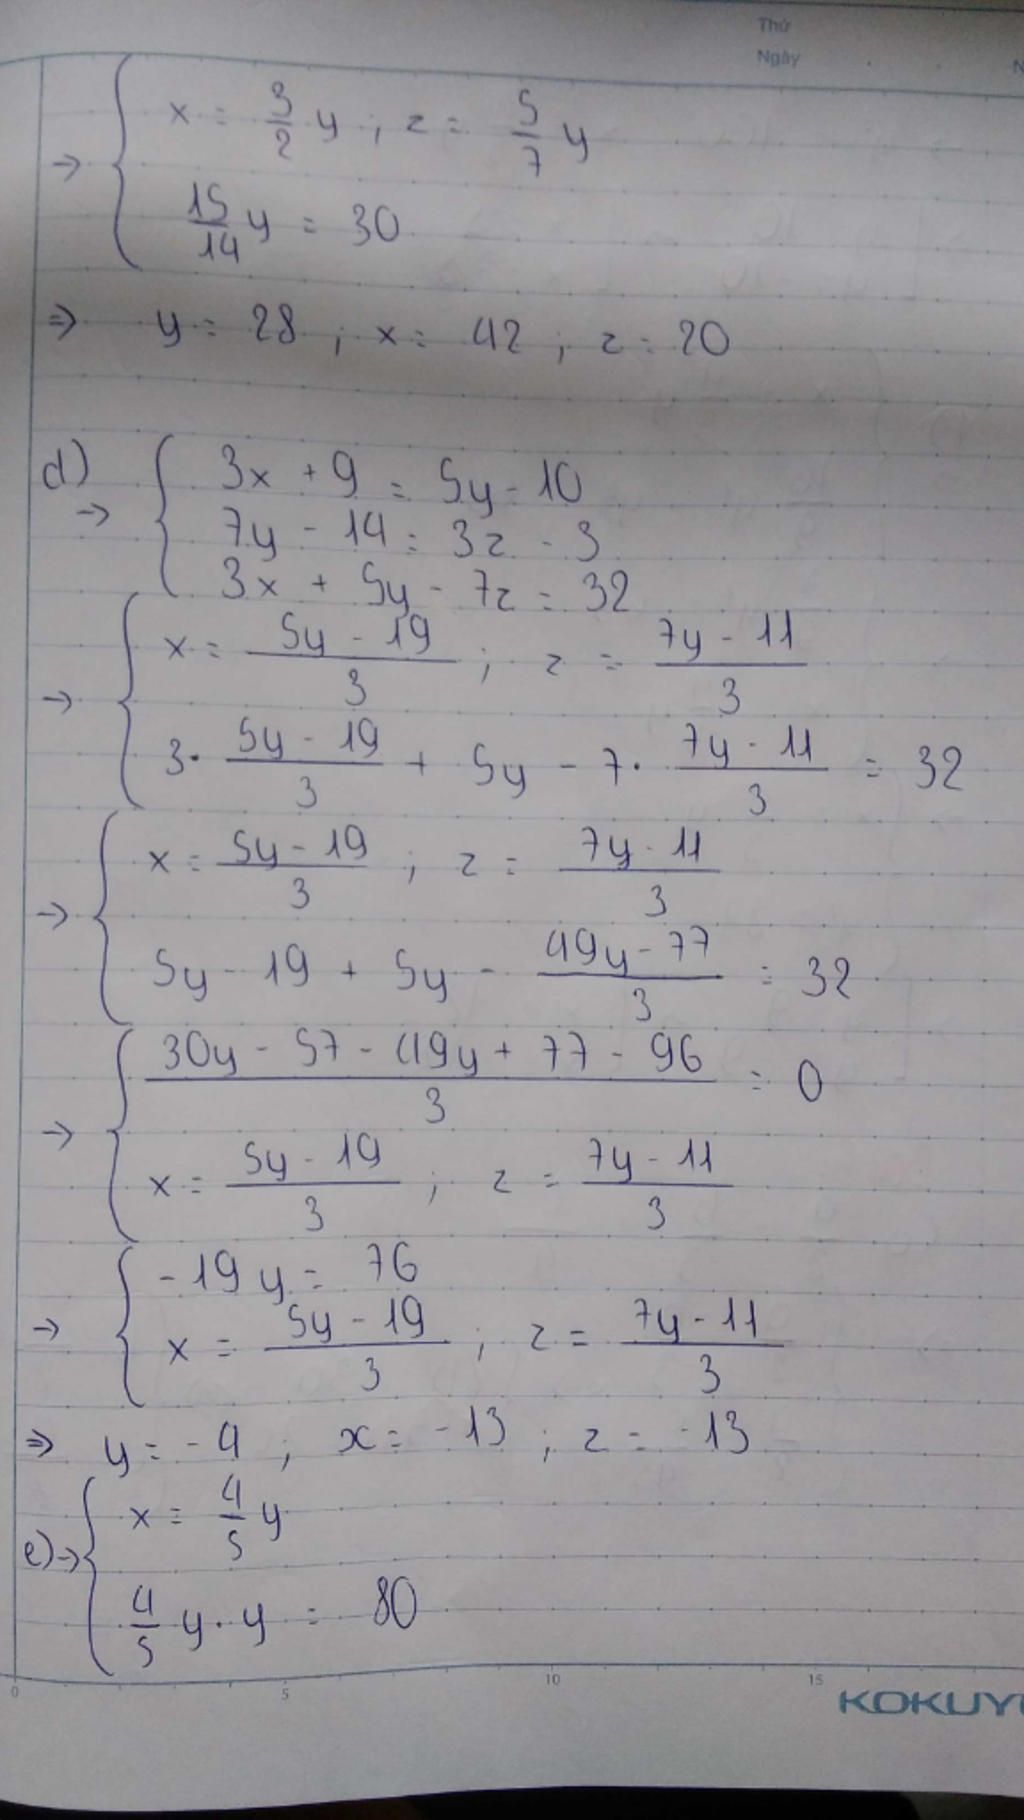 Thứ
Ngày
N
→ { x = 3/2 y ; z = 5/7 y
15/14 y = 30
⇒ y = 28 ; x = 42 ; z = 20
d) → { 3x + 9 = 5y - 10
7y - 14 = 3z - 3
3x + 5y - 7z = 32
→ { x = (5y - 19)/3 ; z = (7y - 11)/3
3 · (5y - 19)/3 + 5y - 7 · (7y - 11)/3 = 32
→ { x = (5y - 19)/3 ; z = (7y - 11)/3
5y - 19 + 5y - (49y - 77)/3 = 32
→ { (30y - 57 - 49y + 77 - 96)/3 = 0
x = (5y - 19)/3 ; z = (7y - 11)/3
→ { -19y = 76
x = (5y - 19)/3 ; z = (7y - 11)/3
⇒ y = -4 ; x = -13 ; z = -13
e) → { x = 4/5 y
4/5 y · y = 80
0 5 10 15
KOKUY